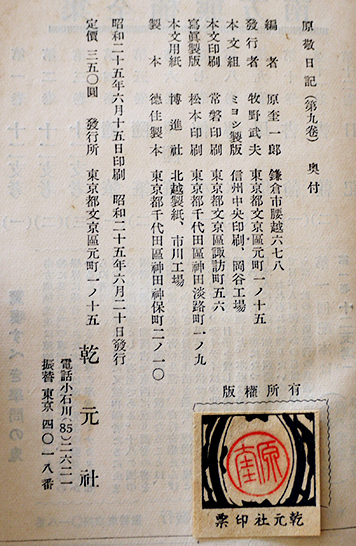 原敬日記（第九巻） 奥付
編者 原奎一郎 鎌倉市腰越六七八
發行者 牧野武夫 東京都文京區元町一ノ十五
本文組 ミヨシ製版 信州中央印刷、岡谷工場
本文印刷 常磐印刷 東京都文京區諏訪町五六
寫眞製版 松本印刷 東京都千代田區神田淡路町一ノ九
本文用紙 博進社 北越製紙、市川工場
製本 德住製本 東京都千代田區神田神保町二ノ一〇
昭和二十五年六月十五日印刷 昭和二十五年六月二十日發行
定價 三五〇圓 發行所 東京都文京區元町一ノ十五 乾元社
電話小石川(85)二六二一
振替東京四〇一八番
版權所有
原奎
乾元社印票